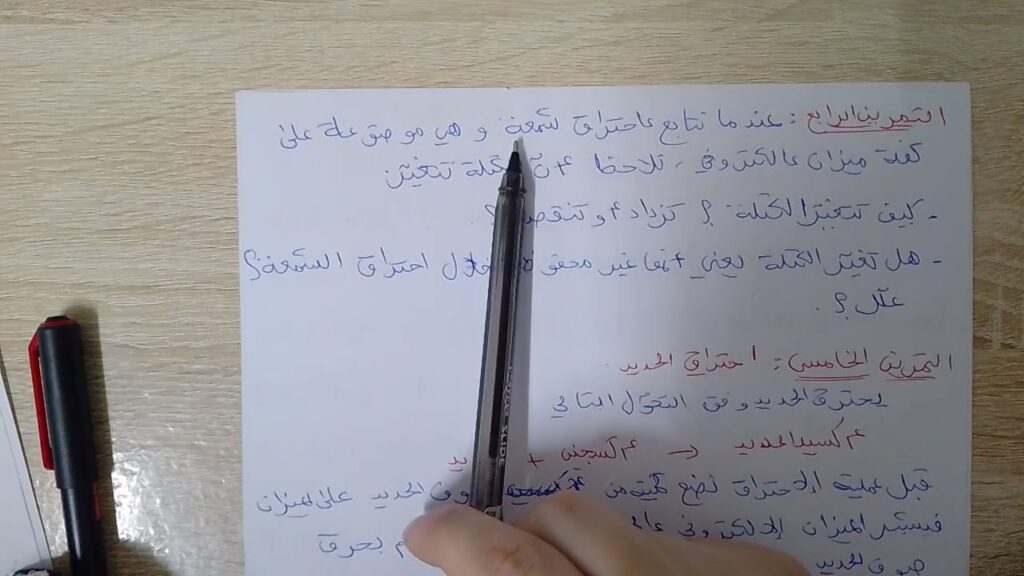 التمرين الرابع : عندما نتابع احتراق شمعة و هي موضوعة على
كفة ميزان الكتروني ، نلاحظ أن الكتلة تتغير
- كيف تتغير الكتلة ؟ تزداد أو تنقص ؟
- هل تغير الكتلة يعني أنها غير محفوظة خلال احتراق الشمعة ؟
علل ؟ .
التمرين الخامس : احتراق الحديد
يحترق الحديد وفق التحول التالي
أكسيد الحديد ← أكسجين +
قبل عملية الاحتراق نضع كمية من صوف الحديد على الميزان
فيشير الميزان الإلكتروني بحرق
صوف الحديد